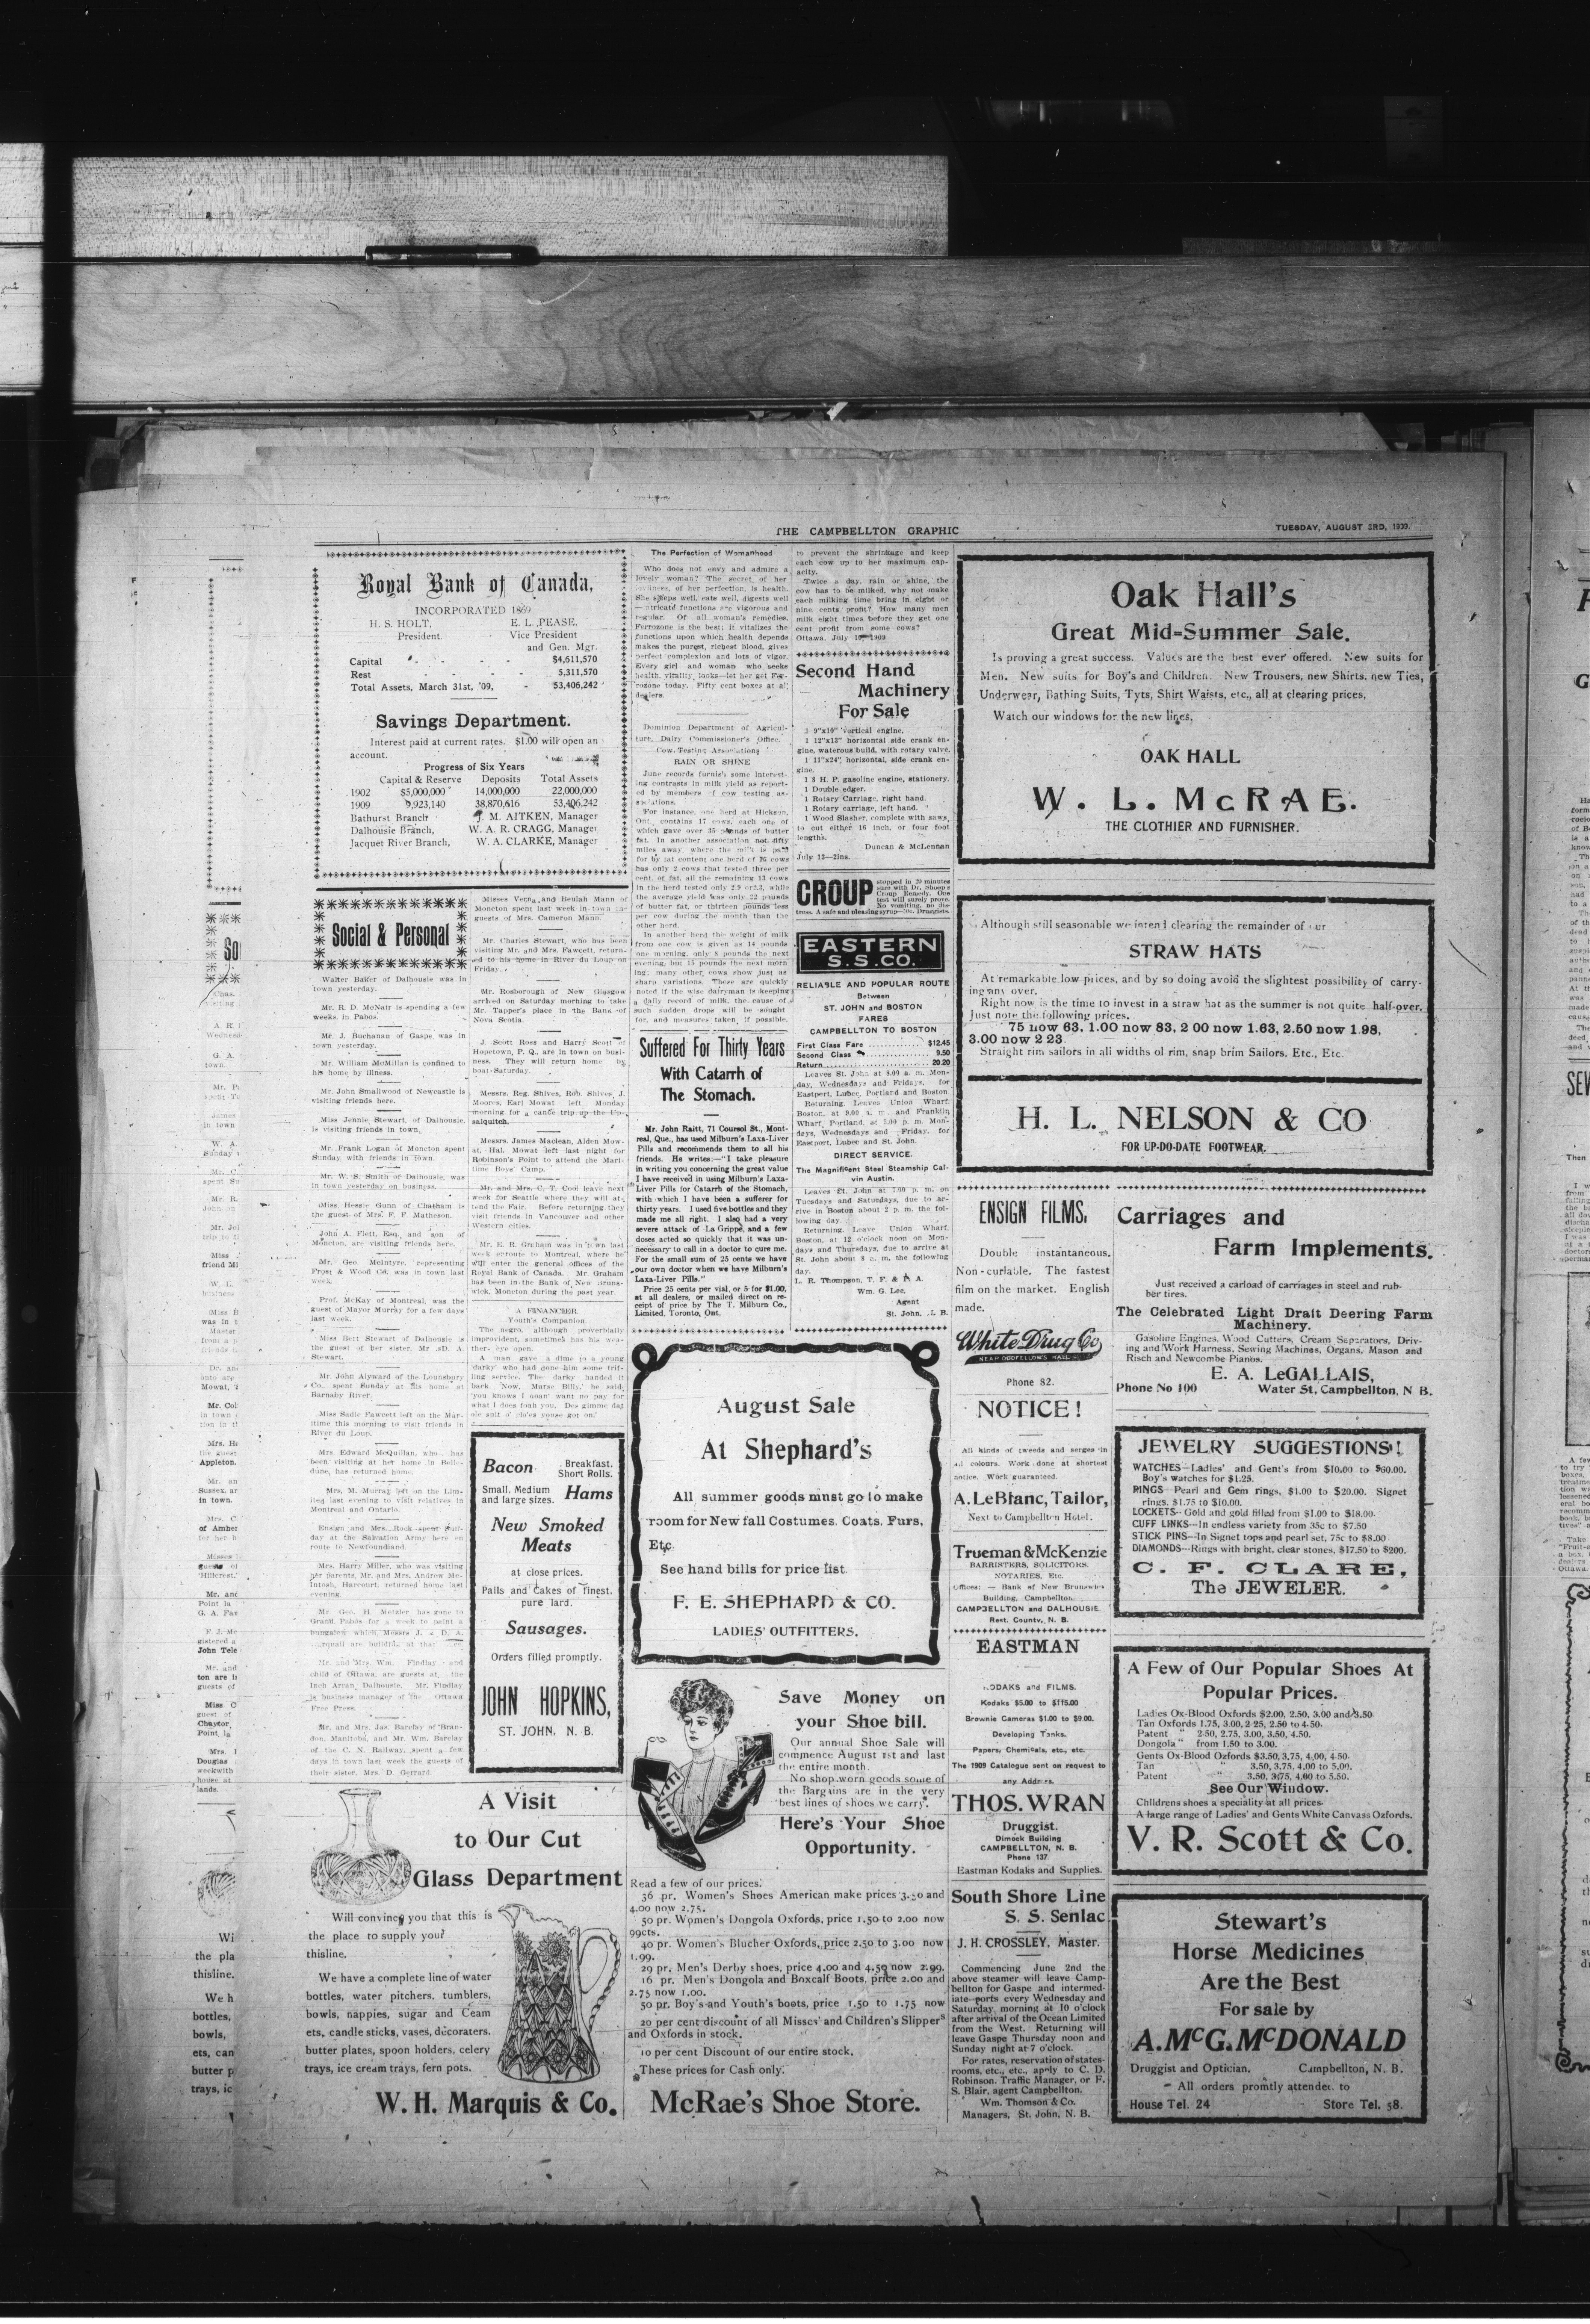 THE CAMPBELLTON GRAPHIC
TUESDAY, AUGUST 3RD, 1909.
Royal Bank of Canada,
INCORPORATED 1869
H. S. HOLT, E. L. PEASE,
President Vice President
and Gen. Mgr.
Capital - - - - $4,611,570
Rest - - - - 5,311,570
Total Assets, March 31st, '09, - 53,406,242
Savings Department.
Interest paid at current rates. $1.00 will open an
account.
Progress of Six Years
Capital & Reserve Deposits Total Assets
1902 $5,000,000 14,000,000 22,000,000
1909 9,923,140 38,870,616 53,406,242
Bathurst Branch J. M. AITKEN, Manager
Dalhousie Branch, W. A. R. CRAGG, Manager
Jacquet River Branch, W. A. CLARKE, Manager
Social & Personal
Walter Baker of Dalhousie was in
town yesterday.
Mr. R. D. McNair is spending a few
weeks in Pabos.
Mr. J. Buchanan of Gaspe was in
town yesterday.
Mr. William McMillan is confined to
his home by illness.
Mr. John Smallwood of Newcastle is
visiting friends here.
Miss Jennie Stewart, of Dalhousie,
is visiting friends in town.
Mr. Frank Logan of Moncton spent
Sunday with friends in town.
Mr. W. S. Smith of Dalhousie, was
in town yesterday on business.
Miss Hessie Gunn of Chatham is
the guest of Mrs. F. F. Matheson.
John A. Flett, Esq., and son of
Moncton, are visiting friends here.
Mr. Geo. McIntyre, representing
Frost & Wood Co. was in town last
week.
Prof. McKay of Montreal, was the
guest of Mayor Murray for a few days
last week.
Miss Bert Stewart of Dalhousie is
the guest of her sister. Mr D. A.
Stewart.
Mr. John Alyward of the Lounsbury
Co., spent Sunday at his home at
Barnaby River.
Miss Sadie Fawcett left on the Mar-
itime this morning to visit friends in
River du Loup.
Mrs. Edward McQuillan, who has
been visiting at her home in Belle-
dune, has returned home.
Mrs. M. Murray left on the Lim-
ited last evening to visit relatives in
Montreal and Ontario.
Ensign and Mrs. Rook spent Sun-
day at the Salvation Army here en
route to Newfoundland.
Mrs. Harry Miller, who was visiting
her parents, Mr. and Mrs. Andrew Mc-
Intosh, Harcourt, returned home last
evening.
Mr. Geo. H. Metzler has gone to
Grand Pabos for a week to paint a
bungalow which Messrs J. & D. A.
are building at that
Mr. and Mrs. Wm. Findlay and
child of Ottawa, are guests at the
Inch Arran, Dalhousie. Mr. Findlay
is business manager of the Ottawa
Free Press.
Mr. and Mrs. Jas. Barclay of Bran-
don, Manitoba, and Mr. Wm. Barclay
of the C. N. Railway, spent a few
days in town last week the guests of
their sister, Mrs. D. Gerrard.
Misses Verna and Beulah Mann of
Moncton spent last week in town
guests of Mrs. Cameron Mann.
Mr. Charles Stewart, who has been
visiting Mr. and Mrs. Fawcett, return-
ed to his home in River du Loup on
Friday.
Mr. Rosborough of New Glasgow
arrived on Saturday morning to take
Mr. Tapper's place in the Bank of
Nova Scotia.
J. Scott Ross and Harry Scott of
Hopetown, P. Q., are in town on busi-
ness. They will return home by
boat Saturday.
Messrs. Reg. Shives, Rob. Shives, J.
Moores, Earl Mowat left Monday
morning for a canoe trip up the Up-
salquitch.
Messrs. James Maclean, Alden Mow-
at, Hal. Mowat left last night for
Robinson's Point to attend the Mari-
time Boys' Camp.
Mr. and Mrs. C. T. Cool leave next
week for Seattle where they will at-
tend the Fair. Before returning they
visit friends in Vancouver and other
Western cities.
Mr. E. R. Graham was in town last
week enroute to Montreal, where he
will enter the general offices of the
Royal Bank of Canada. Mr. Graham
has been in the Bank of New Bruns-
wick, Moncton during the past year.
A FINANCIER.
Youth's Companion.
The negro, although proverbially
improvident, sometimes has his wea-
ther eye open.
A man gave a dime to a young
'darky' who had done him some trif-
ling service. The darky handed it
back. 'Now, Marse Billy,' he said,
'you knows I doan' want no pay for
what I does foah you. Des gimme dat
ole suit o' clo'es youse got on.'
Bacon Breakfast.
Short Rolls.
Small, Medium
and large sizes. Hams
New Smoked
Meats
at close prices.
Pails and Cakes of finest.
pure lard.
Sausages.
Orders filled promptly.
JOHN HOPKINS,
ST. JOHN, N. B.
A Visit
to Our Cut
Glass Department
Will convince you that this is
the place to supply your
thisline.
We have a complete line of water
bottles, water pitchers, tumblers,
bowls, nappies, sugar and Ceam
ets, candle sticks, vases, decoraters.
butter plates, spoon holders, celery
trays, ice cream trays, fern pots.
W. H. Marquis & Co.
The Perfection of Womanhood
Who does not envy and admire a
lovely woman? The secret of her
loveliness, of her perfection, is health.
She sleeps well, eats well, digests well
—intricate functions are vigorous and
regular. Of all woman's remedies,
Ferrozone is the best; it vitalizes the
functions upon which health depends
makes the purest, richest blood, gives
perfect complexion and lots of vigor.
Every girl and woman who seeks
health, vitality, looks—let her get Fer-
rozone today. Fifty cent boxes at all
dealers.
Dominion Department of Agricul-
ture, Dairy Commissioner's Office.
Cow Testing Associations
RAIN OR SHINE
June records furnish some interest-
ing contrasts in milk yield as report-
ed by members of cow testing as-
sociations.
For instance, one herd at Hickson,
Ont., contains 17 cows, each one of
which gave over 35 pounds of butter
fat. In another association not fifty
miles away, where the milk is paid
for by fat content one herd of 16 cows
has only 2 cows that tested three per
cent. of fat, all the remaining 13 cows
in the herd tested only 2.9 or 2.3, while
the average yield was only 22 pounds
of butter fat, or thirteen pounds less
per cow during the month than the
other herd.
In another herd the weight of milk
from one cow is given as 14 pounds
one morning, only 8 pounds the next
evening, but 15 pounds the next morn-
ing; many other cows show just as
sharp variations. These are quickly
noted if the wise dairyman is keeping
a daily record of milk, the cause of
such sudden drops will be sought
for, and measures taken, if possible,
to prevent the shrinkage and keep
each cow up to her maximum cap-
acity.
Twice a day, rain or shine, the
cow has to be milked, why not make
each milking time bring in eight or
nine cents profit? How many men
milk eight times before they get one
cent profit from some cows?
Ottawa, July 1909
Suffered For Thirty Years
With Catarrh of
The Stomach.
Mr. John Raitt, 71 Coursol St., Mont-
real, Que., has used Milburn's Laxa-Liver
Pills and recommends them to all his
friends. He writes:—"I take pleasure
in writing you concerning the great value
I have received in using Milburn's Laxa-
Liver Pills for Catarrh of the Stomach,
with which I have been a sufferer for
thirty years. I used five bottles and they
made me all right. I also had a very
severe attack of La Grippe, and a few
doses acted so quickly that it was un-
necessary to call in a doctor to cure me.
For the small sum of 25 cents we have
our own doctor when we have Milburn's
Laxa-Liver Pills."
Price 25 cents per vial, or 5 for $1.00,
at all dealers, or mailed direct on re-
ceipt of price by The T. Milburn Co.,
Limited, Toronto, Ont.
Second Hand
Machinery
For Sale
1 9"x10" vertical engine.
1 12"x13" horizontal side crank en-
gine, waterous build, with rotary valve.
1 11"x24", horizontal, side crank en-
gine.
1 8 H. P. gasoline engine, stationery.
1 Double edger.
1 Rotary Carriage, right hand.
1 Rotary carriage, left hand.
1 Wood Slasher, complete with saws,
to cut either 16 inch, or four foot
lengths.
Duncan & McLennan
July 13—2ins.
CROUP stopped in 20 minutes
sure with Dr. Shoop's
Croup Remedy. One
test will surely prove.
No vomiting, no dis-
tress. A safe and pleasing syrup—50c. Druggists.
EASTERN
S.S.CO.
RELIABLE AND POPULAR ROUTE
Between
ST. JOHN and BOSTON
FARES
CAMPBELLTON TO BOSTON
First Class Fare $12.45
Second Class 9.50
Return 20.20
Leaves St. John at 8.00 a. m. Mon-
day, Wednesdays and Fridays, for
Eastport, Lubec, Portland and Boston.
Returning. Leaves Union Wharf.
Boston, at 9.00 a. m. and Franklin
Wharf, Portland, at 5.00 p. m. Mon-
days, Wednesdays and Friday, for
Eastport, Lubec and St. John.
DIRECT SERVICE.
The Magnificent Steel Steamship Cal-
vin Austin.
Leaves St. John at 7.00 p. m. on
Tuesdays and Saturdays, due to ar-
rive in Boston about 2 p. m. the fol-
lowing day.
Returning. Leave Union Wharf,
Boston, at 12 o'clock noon on Mon-
days and Thursdays, due to arrive at
St. John about 8 a. m. the following
day.
L. R. Thompson, T. F. & P. A.
Wm. G. Lee,
Agent
St. John, N. B.
August Sale
At Shephard's
All summer goods must go to make
room for New fall Costumes. Coats, Furs,
Etc.
See hand bills for price list.
F. E. SHEPHARD & CO.
LADIES' OUTFITTERS.
Save Money on
your Shoe bill.
Our annual Shoe Sale will
commence August 1st and last
the entire month.
No shop-worn goods some of
the Bargains are in the very
best lines of shoes we carry.
Here's Your Shoe
Opportunity.
Read a few of our prices:
36 pr. Women's Shoes American make prices 3.50 and
4.00 now 2.75.
50 pr. Women's Dongola Oxfords, price 1.50 to 2.00 now
99cts.
40 pr. Women's Blucher Oxfords, price 2.50 to 3.00 now
1.99.
29 pr. Men's Derby shoes, price 4.00 and 4.50 now 2.99.
16 pr. Men's Dongola and Boxcalf Boots, price 2.00 and
2.75 now 1.00.
50 pr. Boy's and Youth's boots, price 1.50 to 1.75 now
20 per cent discount of all Misses' and Children's Slippers
and Oxfords in stock.
10 per cent Discount of our entire stock.
These prices for Cash only.
McRae's Shoe Store.
Oak Hall's
Great Mid-Summer Sale.
Is proving a great success. Values are the best ever offered. New suits for
Men. New suits for Boy's and Children. New Trousers, new Shirts, new Ties,
Underwear, Bathing Suits, Tyts, Shirt Waists, etc., all at clearing prices.
Watch our windows for the new lines.
OAK HALL
W. L. McRAE.
THE CLOTHIER AND FURNISHER.
Although still seasonable we intend clearing the remainder of our
STRAW HATS
At remarkable low prices, and by so doing avoid the slightest possibility of carry-
ing any over.
Right now is the time to invest in a straw hat as the summer is not quite half-over.
Just note the following prices.
75 now 63, 1.00 now 83, 2 00 now 1.63, 2.50 now 1.98,
3.00 now 2 23
Straight rim sailors in all widths of rim, snap brim Sailors, Etc., Etc.
H. L. NELSON & CO
FOR UP-DO-DATE FOOTWEAR.
ENSIGN FILMS.
Double instantaneous.
Non-curlable. The fastest
film on the market. English
made.
White Drug Co
NEAR ODDFELLOWS HALL
Phone 82.
NOTICE!
All kinds of tweeds and serges in
all colours. Work done at shortest
notice. Work guaranteed.
A. LeBlanc, Tailor,
Next to Campbellton Hotel.
Trueman & McKenzie
BARRISTERS, SOLICITORS,
NOTARIES, Etc.
Offices: — Bank of New Brunswick
Building, Campbellton.
CAMPBELLTON and DALHOUSIE
Rest. County, N. B.
EASTMAN
KODAKS and FILMS.
Kodaks $5.00 to $115.00
Brownie Cameras $1.00 to $9.00.
Developing Tanks.
Papers, Chemicals, etc., etc.
The 1909 Catalogue sent on request to
any Address.
THOS. WRAN
Druggist.
Dimock Building
CAMPBELLTON, N. B.
Phone 137
Eastman Kodaks and Supplies.
South Shore Line
S. S. Senlac
J. H. CROSSLEY, Master.
Commencing June 2nd the
above steamer will leave Camp-
bellton for Gaspe and intermed-
iate ports every Wednesday and
Saturday, morning at 10 o'clock
after arrival of the Ocean Limited
from the West. Returning will
leave Gaspe Thursday noon and
Sunday night at 7 o'clock.
For rates, reservation of states-
rooms, etc., etc., apply to C. D.
Robinson. Traffic Manager, or F.
S. Blair, agent Campbellton.
Wm. Thomson & Co.
Managers, St. John, N. B.
Carriages and
Farm Implements.
Just received a carload of carriages in steel and rub-
ber tires.
The Celebrated Light Draft Deering Farm
Machinery.
Gasoline Engines, Wood Cutters, Cream Separators, Driv-
ing and Work Harness, Sewing Machines, Organs, Mason and
Risch and Newcombe Pianos.
E. A. LeGALLAIS,
Phone No 100 Water St, Campbellton, N B.
JEWELRY SUGGESTIONS!
WATCHES—Ladies' and Gent's from $10.00 to $60.00.
Boy's watches for $1.25.
RINGS—Pearl and Gem rings, $1.00 to $20.00. Signet
rings. $1.75 to $10.00.
LOCKETS—Gold and gold filled from $1.00 to $18.00.
CUFF LINKS—In endless variety from 35c to $7.50
STICK PINS—In Signet tops and pearl set, 75c to $8.00
DIAMONDS—Rings with bright, clear stones, $17.50 to $200.
C. F. CLARE,
The JEWELER.
A Few of Our Popular Shoes At
Popular Prices.
Ladies Ox-Blood Oxfords $2.00, 2.50, 3.00 and 3.50
Tan Oxfords 1.75, 3.00, 2 25, 2.50 to 4.50.
Patent " 2.50, 2.75, 3.00, 3.50, 4.50.
Dongola " from 1.50 to 3.00.
Gents Ox-Blood Oxfords $3.50, 3.75, 4.00, 4.50.
Tan " 3.50, 3.75, 4.00 to 5.00.
Patent " 3.50, 3.75, 4.00 to 5.50.
See Our Window.
Childrens shoes a speciality at all prices.
A large range of Ladies' and Gents White Canvass Ozfords.
V. R. Scott & Co.
Stewart's
Horse Medicines
Are the Best
For sale by
A. McG. McDONALD
Druggist and Optician, Campbellton, N. B.
All orders promtly attended to
House Tel. 24 Store Tel. 58.